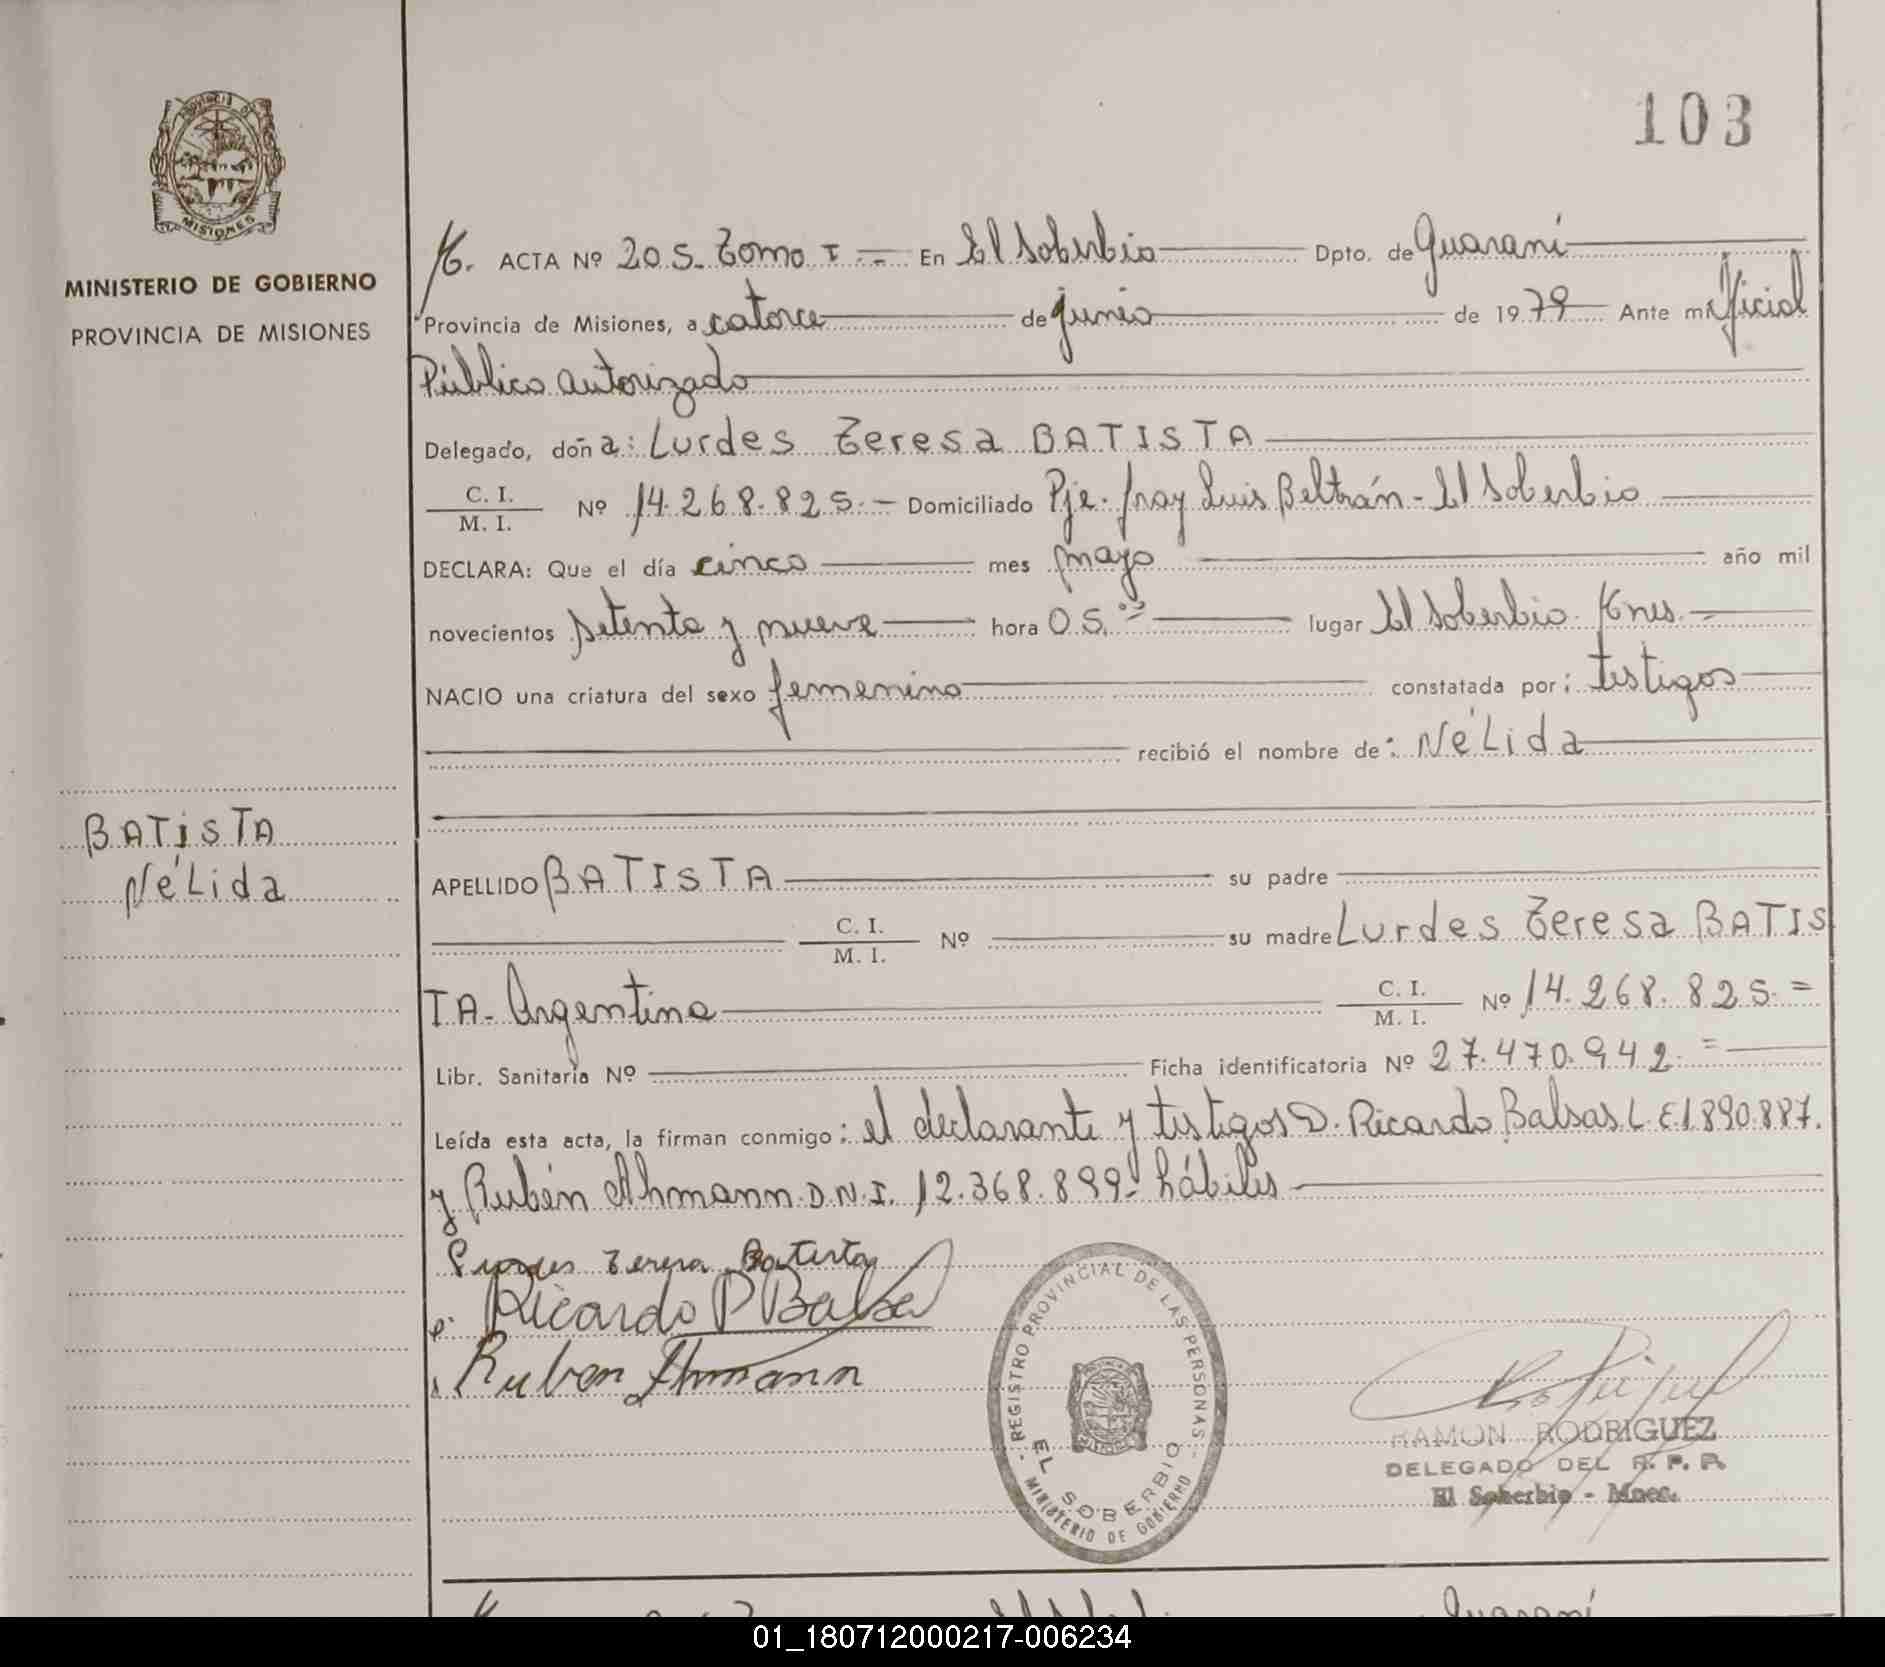 103
MINISTERIO DE GOBIERNO
PROVINCIA DE MISIONES
MISIONES
ACTA Nº 205. Tomo I = En El Soberbio Dpto. de Guaraní
Provincia de Misiones, a catorce de junio de 1979 Ante mí Oficial
Público autorizado
Delegado, doña: Lurdes Teresa BATISTA
C. I. / M. I. Nº 14.268.825.- Domiciliado Pje. fray Luis Beltrán - El Soberbio
DECLARA: Que el día cinco mes mayo año mil
novecientos setenta y nueve hora 05.°° lugar El Soberbio Mnes. -
NACIO una criatura del sexo femenino constatada por: testigos
recibió el nombre de: NéLida
BATISTA
NéLida
APELLIDO BATISTA su padre
C. I. / M. I. Nº su madre Lurdes Teresa BATIS
TA - Argentina C. I. / M. I. Nº 14.268.825.=
Libr. Sanitaria Nº Ficha identificatoria Nº 27.470.942.=
Leída esta acta, la firman conmigo: el declarante y testigos D. Ricardo Balsas L.E 1.890.887.
y Rubén Ahmann D.N.I. 12.368.899- hábiles
Lurdes Teresa Batista
Ricardo P Balsa
Ruben Ahmann
REGISTRO PROVINCIAL DE LAS PERSONAS
EL SOBERBIO
MINISTERIO DE GOBIERNO
RAMON RODRIGUEZ
DELEGADO DEL R. P. P.
El Soberbio - Mnes.
El Soberbio Guaraní
01_180712000217-006234